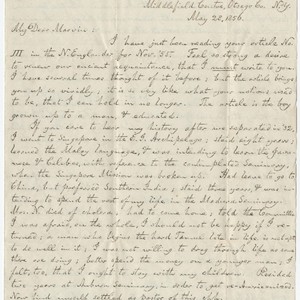 Middlefield Centre, Otsego Co. N.Y.
May 28, 1856.
My Dear Marvin:
I have just been reading your article No.
III in the N. Englander for Nov. '52. Feel so strong a desire
to renew our ancient acquaintance, that I must write to you.
I have several times thought of it before; but the article brings
you up so vividly; it is so very like what your notions used
to be, that I can hold in no longer. The article is the boy
grown up to a man & educated.
If you care to hear my history after we separated in '32,
I went to Singapore in the E. I. Archipelago; staid eight years;
learned the Malay language, & was intending to learn the Javanese
& Celebes, with reference to the contemplated Seminary.
When the Singapore Mission was broken up. Had leave to go to
China, but preferred Southern India; staid three years, & was in-
tending to spend the rest of my life in the Madura Seminary.
Mrs. N. died of cholera; had to come home; told the Committee
I was afraid, on the whole, I should not be happy if I re-
turned; a man who begins the hard Tamil late in life is not apt
to do well in it; I was not willing to drag through life as some
there were doing; better spend the money on a younger man; I
felt, too, that I ought to stay with my children. Resided
two years at Auburn Seminary, in order to get re-Americanized.
Now find myself settled as pastor of this